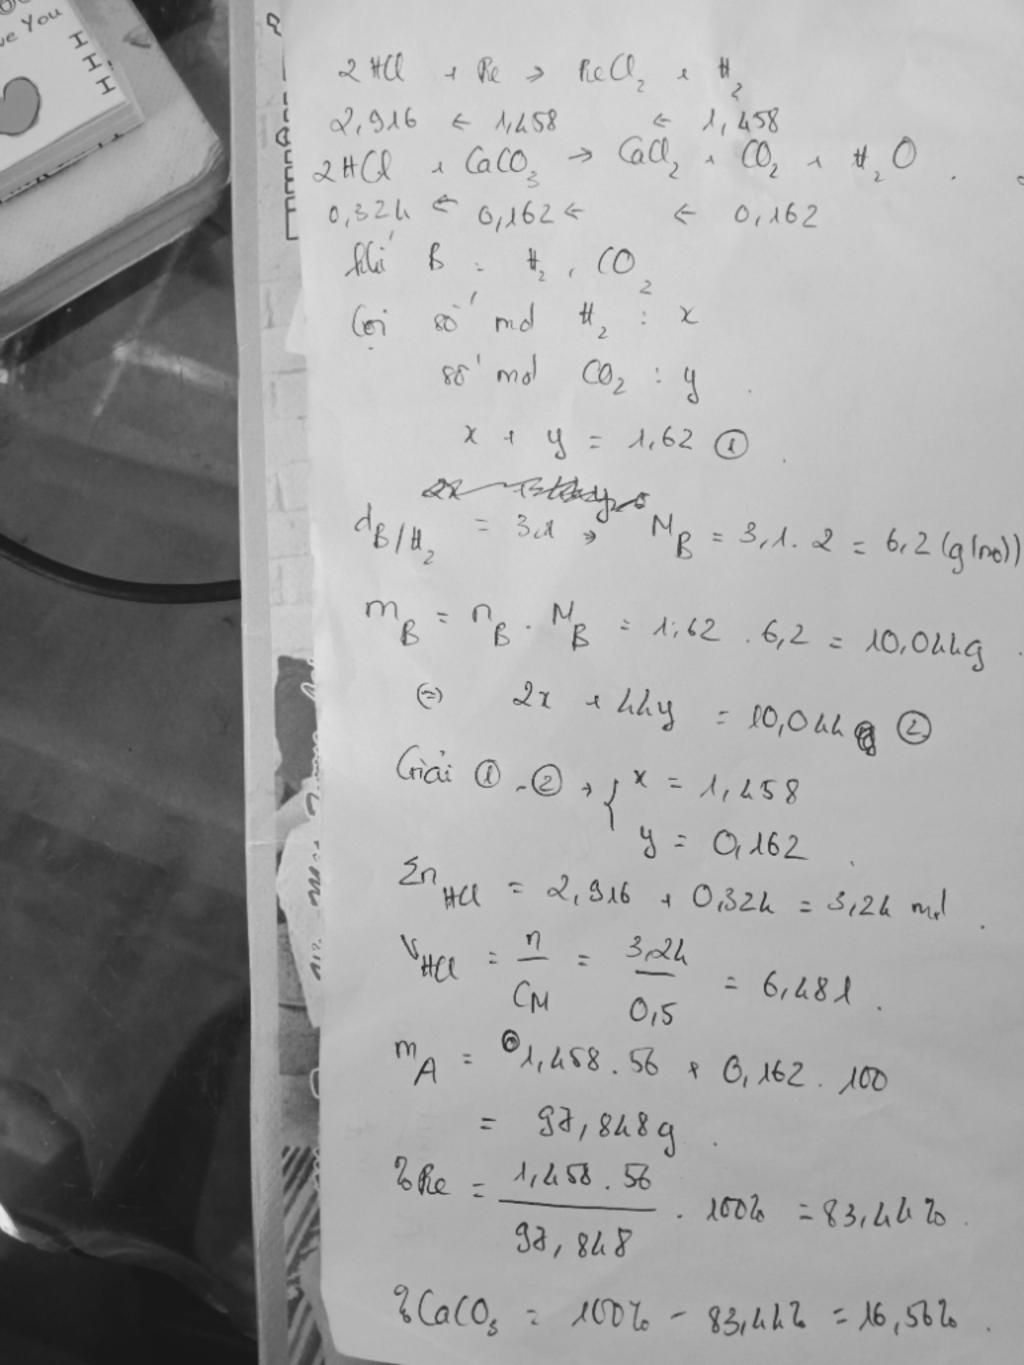 ve You
I
I
I
2HCl + Fe → FeCl₂ + H₂
2,916 ← 1,458 ← 1,458
2HCl + CaCO₃ → CaCl₂ + CO₂ + H₂O.
0,324 ← 0,162 ← ← 0,162
khí B : H₂, CO₂
Gọi số mol H₂ : x
số mol CO₂ : y.
x + y = 1,62 ①.
d_B/H₂ = 3,1 → M_B = 3,1 . 2 = 6,2 (g/mol)
m_B = n_B . M_B = 1,62 . 6,2 = 10,044g.
(=) 2x + 44y = 10,044 ②
Giải ①, ② → { x = 1,458
y = 0,162.
Σn_HCl = 2,916 + 0,324 = 3,24 mol.
V_HCl = n/C_M = 3,24/0,5 = 6,48l.
m_A = 1,458 . 56 + 0,162 . 100
= 97,848g.
%Fe = 1,458 . 56/97,848 . 100% = 83,44%.
%CaCO₃ = 100% - 83,44% = 16,56%.